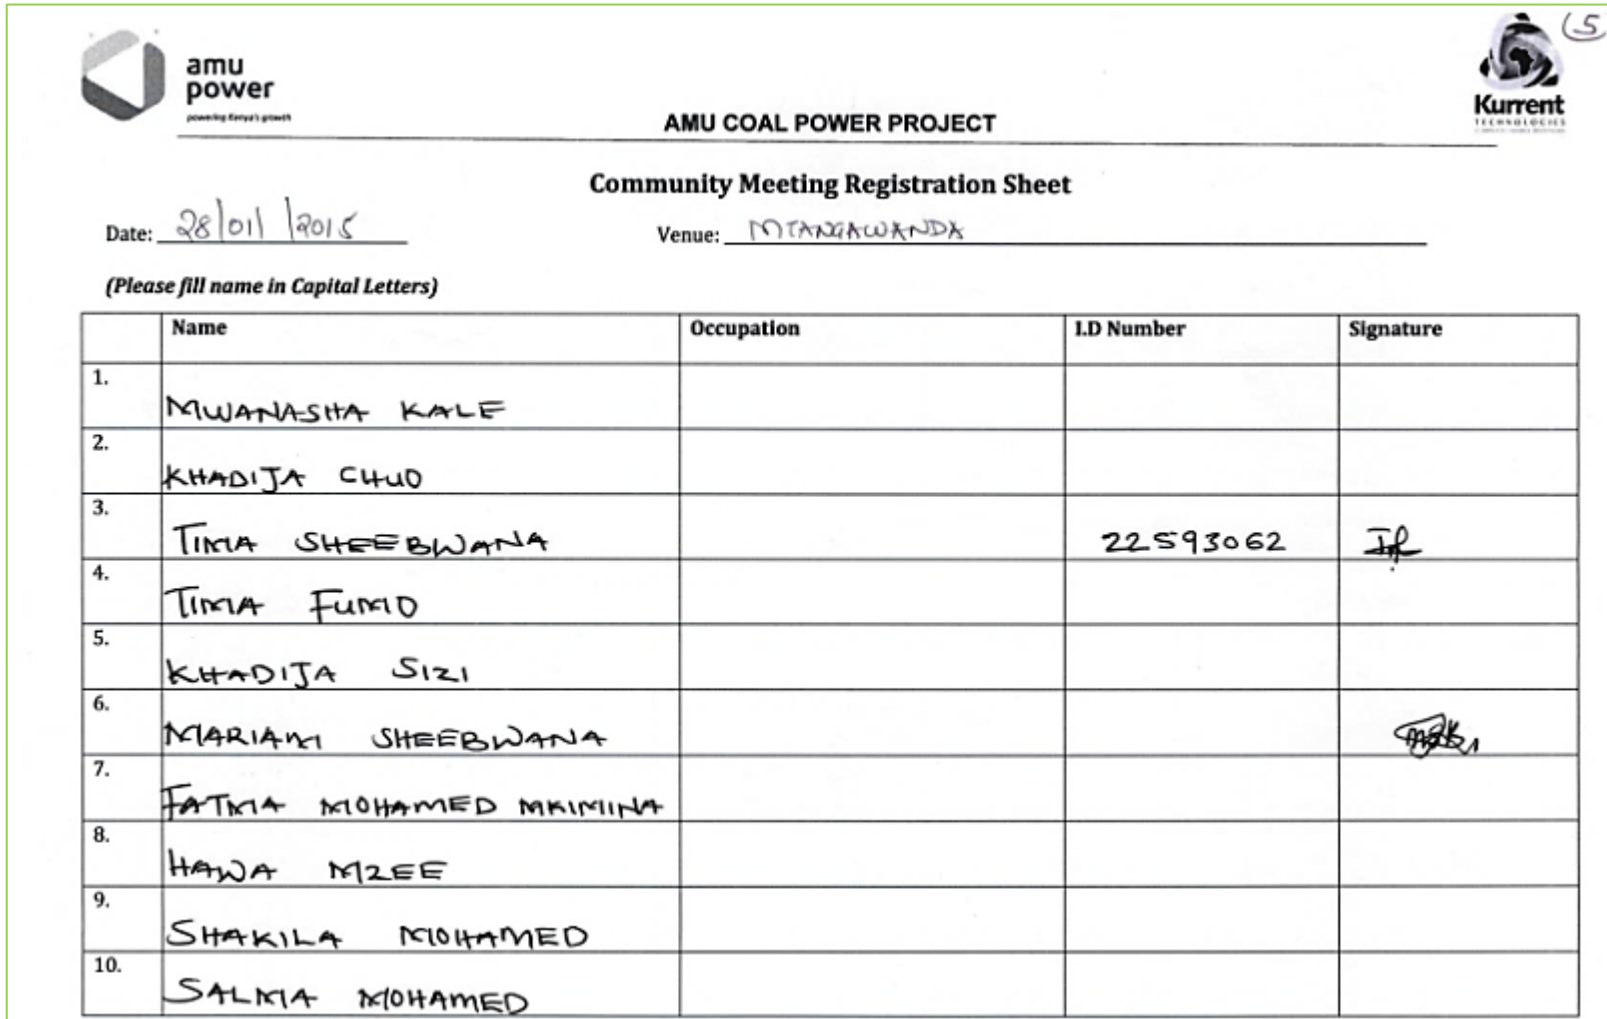 5
amu
power
powering Kenya's growth
Kurrent
TECHNOLOGIES
AMU COAL POWER PROJECT
Community Meeting Registration Sheet
Date: 28/01/2015 Venue: MTANGAWANDA
(Please fill name in Capital Letters)
Name Occupation I.D Number Signature
1. MWANASHA KALE
2. KHADIJA CHUO
3. TIMA SHEEBWANA 22593062
4. TIMA FUMO
5. KHADIJA SIZI
6. MARIAM SHEEBWANA
7. FATMA MOHAMED MKIMINA
8. HAWA MZEE
9. SHAKILA MOHAMED
10. SALMA MOHAMED